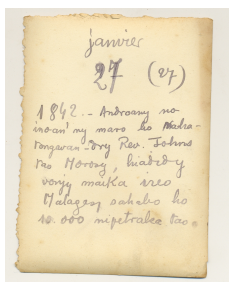 janvier
27 (27)
1842. - Androany no
inoan'ny maro ho
-dry Rev. Johns
tao Moroso, hiadidy
vonjy maika ireo
Malagasy sahabo ho
10.000 nipetraka tao.